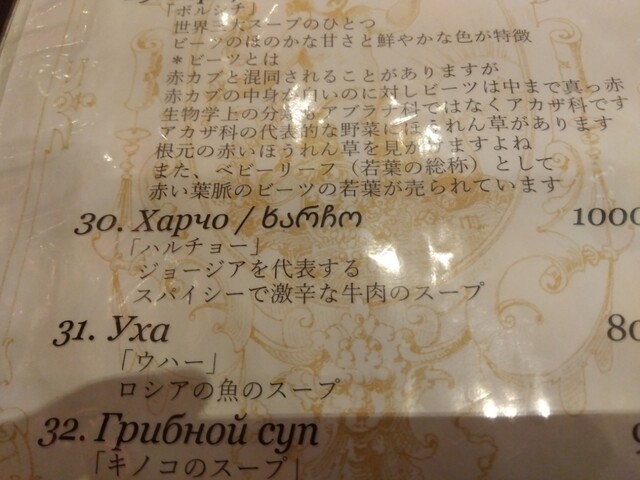 「ボルシチ」
世界三大スープのひとつ
ビーツのほのかな甘さと鮮やかな色が特徴
＊ビーツとは
赤カブと混同されることがありますが
赤カブの中身が白いのに対しビーツは中まで真っ赤
生物学上の分類もアブラナ科ではなくアカザ科です
アカザ科の代表的な野菜にほうれん草があります
根元の赤いほうれん草を見かけますよね
また、ベビーリーフ（若葉の総称）として
赤い葉脈のビーツの若葉が売られています
30. Харчо / ხარჩო 1000
「ハルチョー」
ジョージアを代表する
スパイシーで激辛な牛肉のスープ
31. Уха 80
「ウハー」
ロシアの魚のスープ
32. Грибной суп
「キノコのスープ」